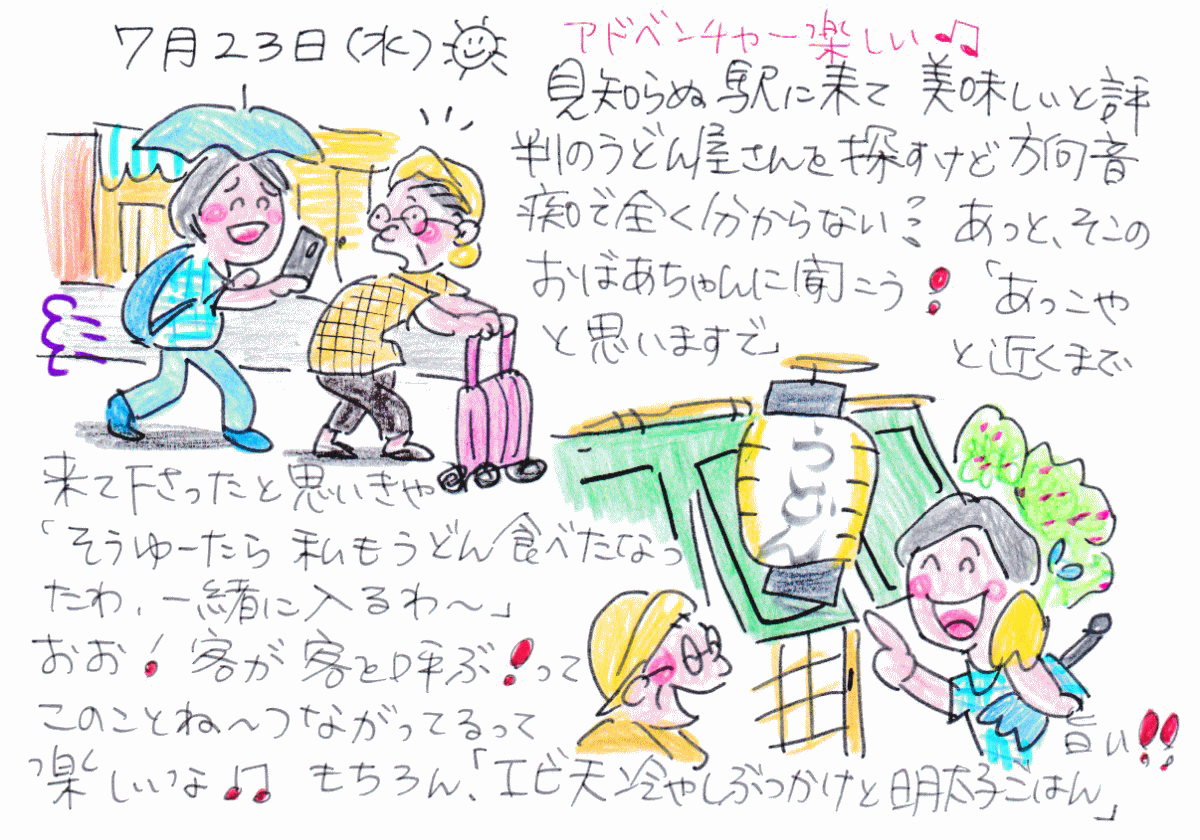 7月23日(水)
アドベンチャー楽しい♫
見知らぬ駅に来て 美味しいと評
判のうどん屋さんを探すけど方向音
痴で全く分からない? あっと、そこの
おばあちゃんに聞こう! 「あっこや
と思いますで」 と近くまで
うどん
来て下さったと思いきや
「そうゆーたら 私もうどん食べたなっ
たわ、一緒に入るわ〜」
おお! 客が客を呼ぶ!って
このことね〜つながってるって
楽しいな♫ もちろん、「エビ天冷やしぶっかけと明太子ごはん」
旨い!!